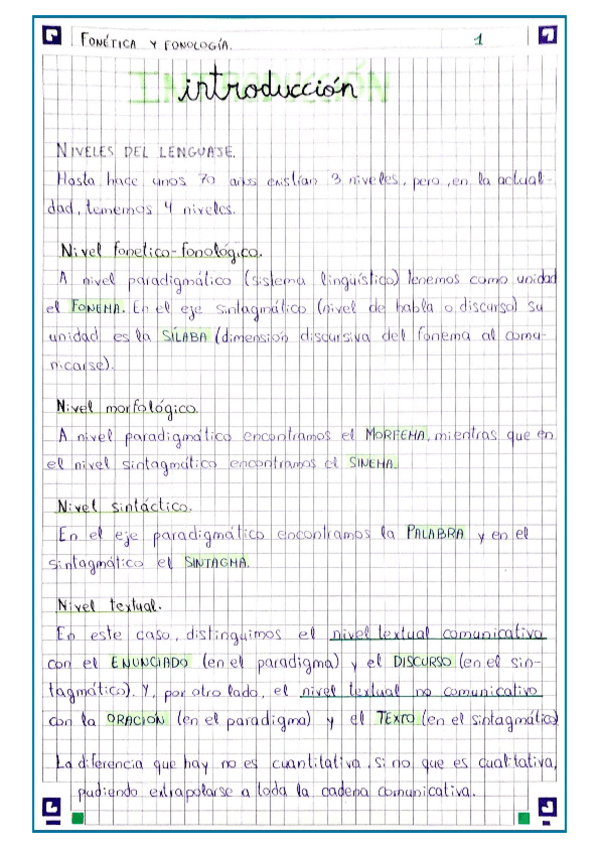 FONÉTICA Y FONOLOGÍA. 1
introducción
NIVELES DEL LENGUAJE.
Hasta hace unos 70 años existían 3 niveles, pero, en la actual-
dad, tenemos 4 niveles.
Nivel fonético-fonológico.
A nivel paradigmático (sistema lingüístico) tenemos como unidad
el FONEMA. En el eje sintagmático (nivel de habla o discurso) su
unidad es la SÍLABA (dimensión discursiva del fonema al comu-
nicarse).
Nivel morfológico.
A nivel paradigmático encontramos el MORFEMA, mientras que en
el nivel sintagmático encontramos el SINEMA.
Nivel sintáctico.
En el eje paradigmático encontramos la PALABRA y en el
sintagmático el SINTAGMA.
Nivel textual.
En este caso, distinguimos el nivel textual comunicativo
con el ENUNCIADO (en el paradigma) y el DISCURSO (en el sin-
tagmático). Y, por otro lado, el nivel textual no comunicativo
con la ORACIÓN (en el paradigma) y el TEXTO (en el sintagmático)
La diferencia que hay no es cuantitativa, si no que es cualitativa,
pudiendo extrapolarse a toda la cadena comunicativa.